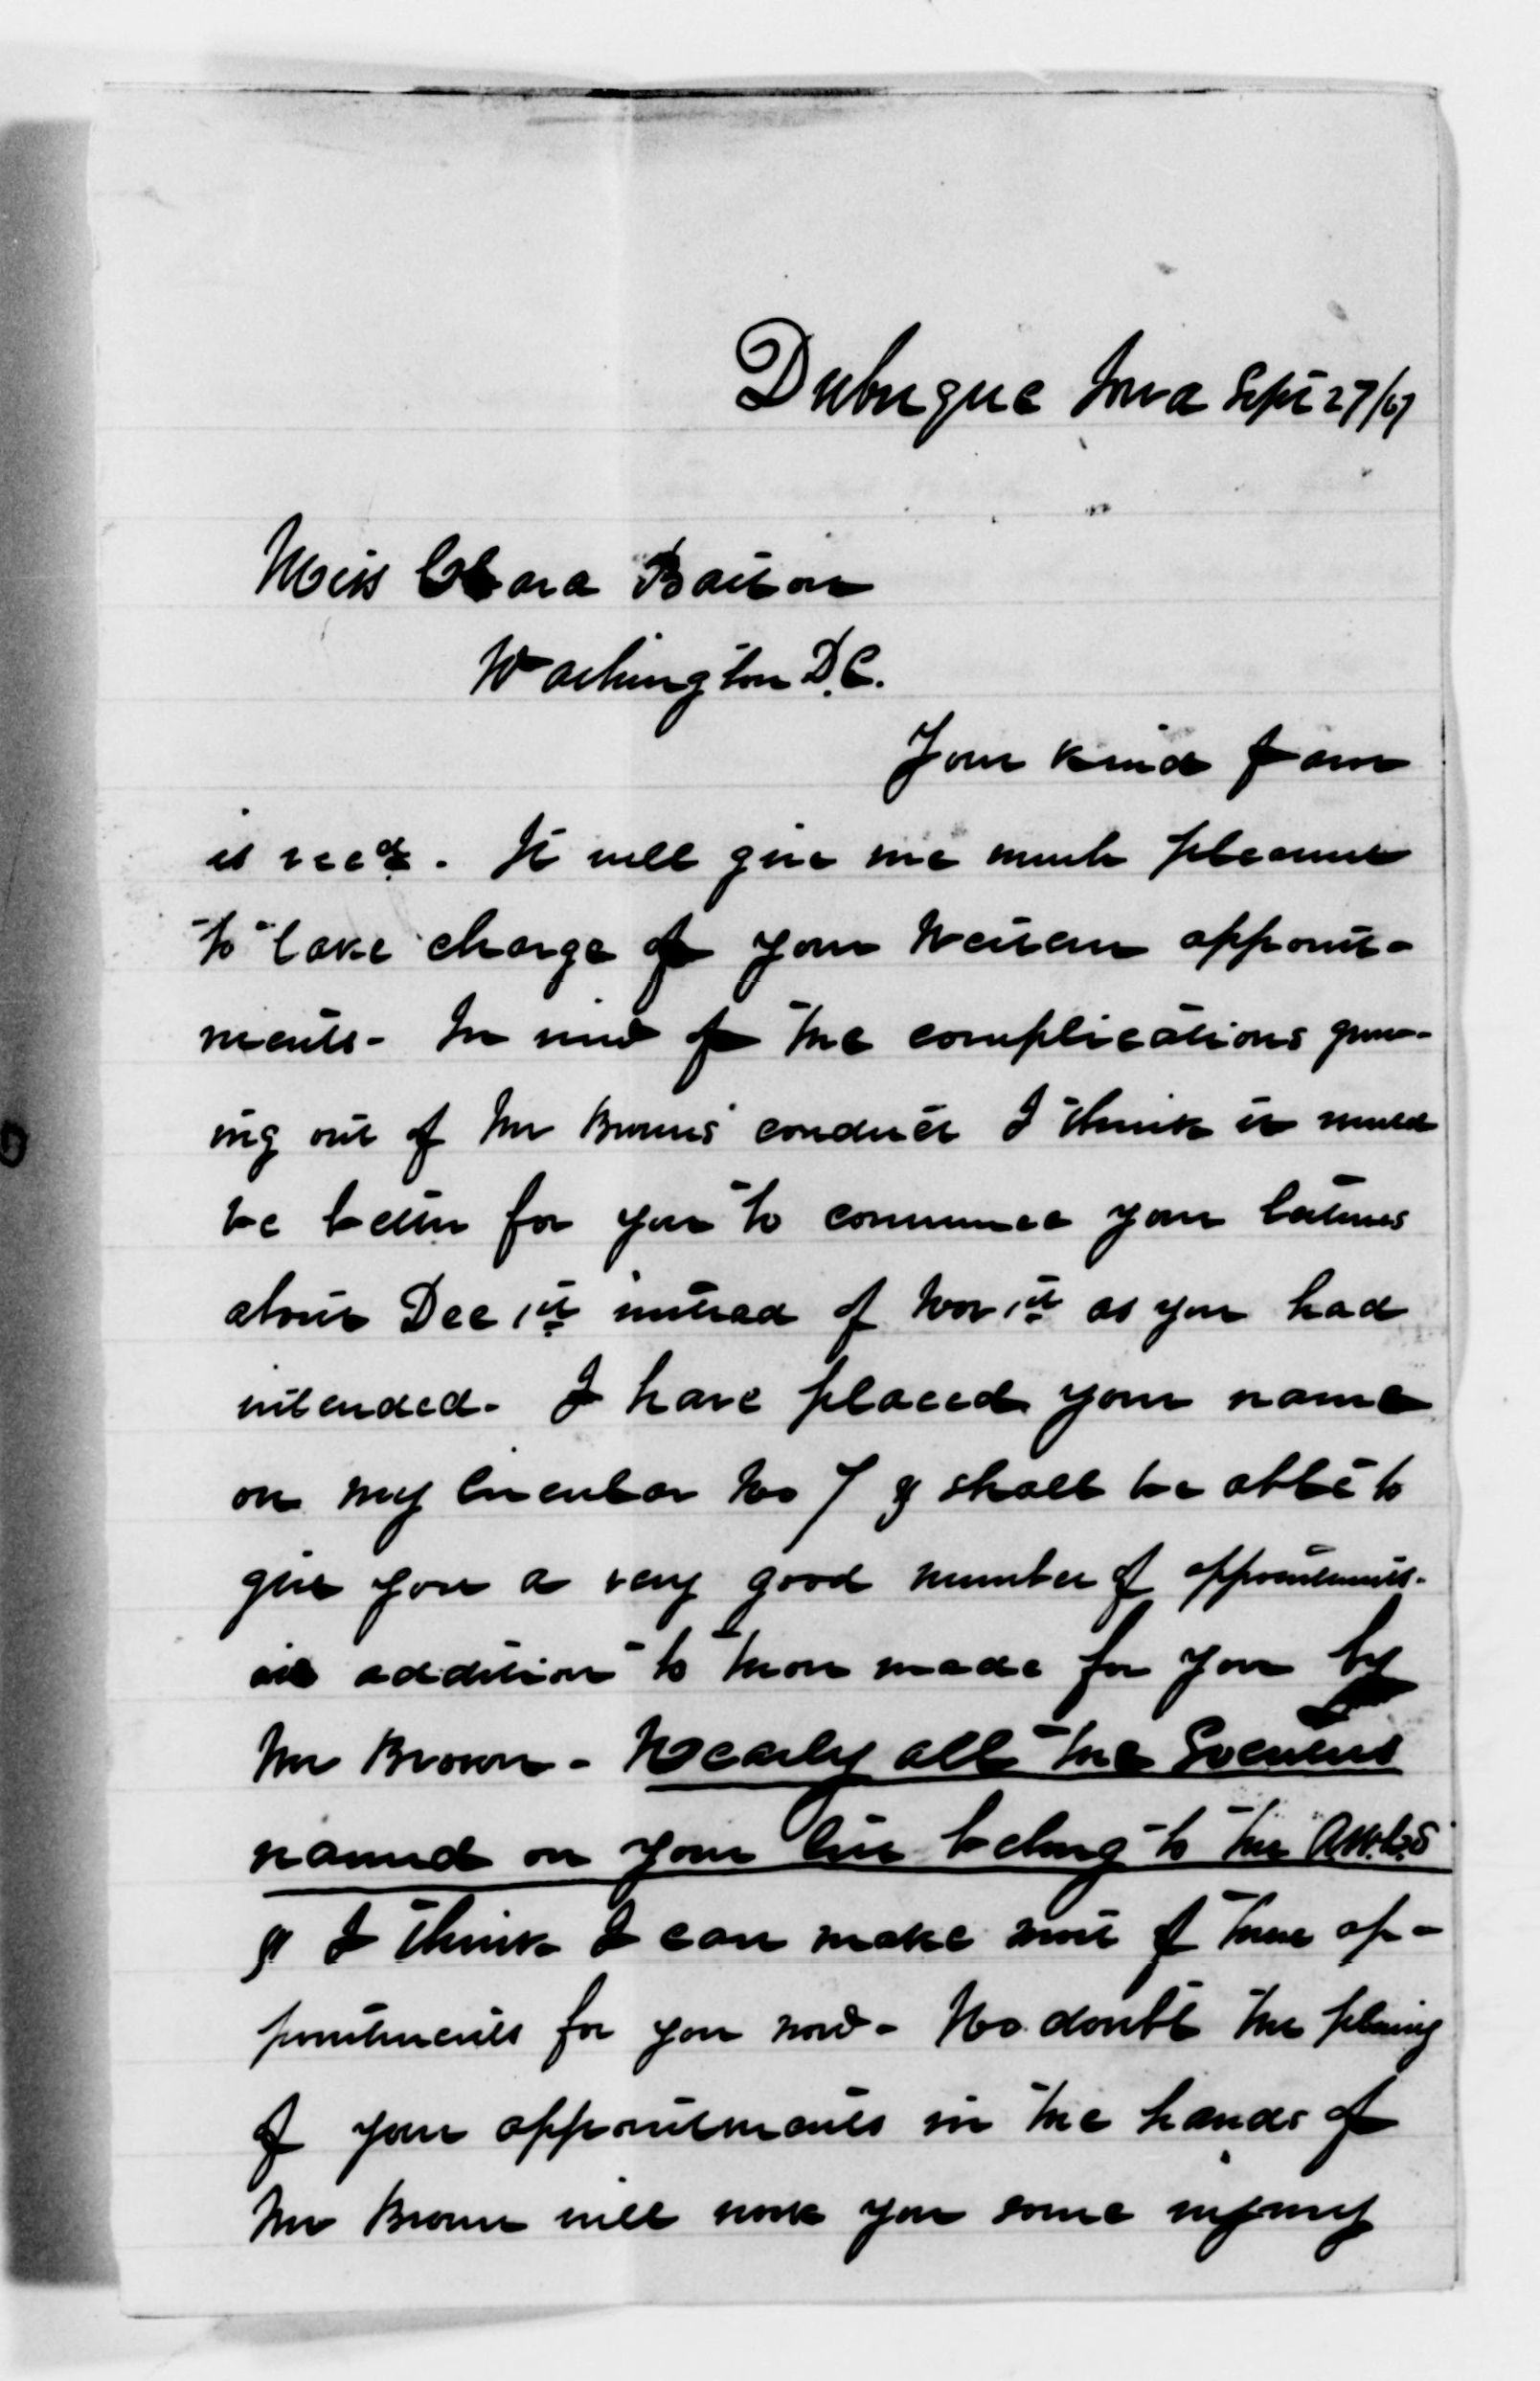 Dubuque Iowa Sept 27/67
Miss Clara Barton
Washington D.C.
Your kind favor
is recd. It will give me much pleasure
to take charge of your Western appoint-
ments - In view of the complications grow-
ing out of Mr Browns' conduct I think it would
be better for you to commence your lectures
about Dec 1st instead of Nov 1st as you had
intended - I have placed your name
on my Circular No 7 & shall be able to
give you a very good number of appointments -
in addition to those made for you by
Mr Brown - Nearly all the Societies
named on your list belong to the A.W.L.S
& I think I can make most of these ap-
pointments for you now - No doubt the placing
of your appointments in the hands of
Mr Brown will work you some injury